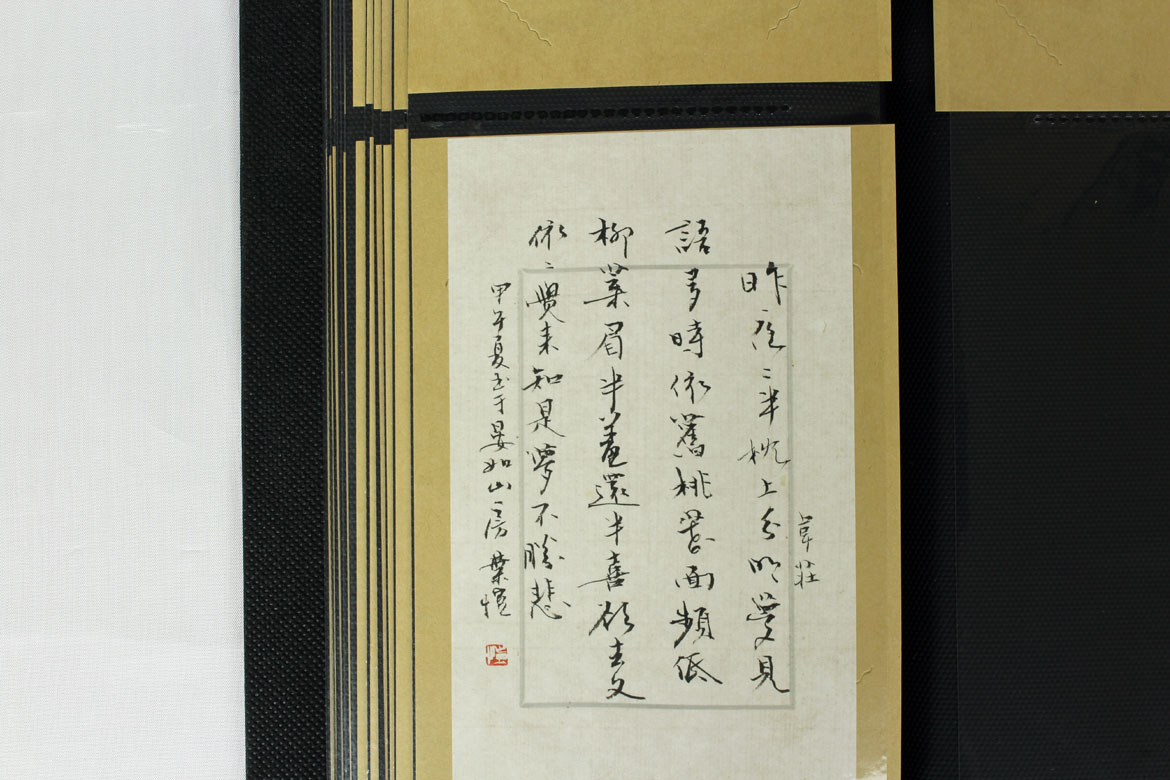 韋莊
昨夜〻半枕上分明夢見
語多時依舊桃花面頻低
柳葉眉半羞還半喜欲去又
依〻覺来知是夢不勝悲
甲午夏书于晏如山房 葉愷